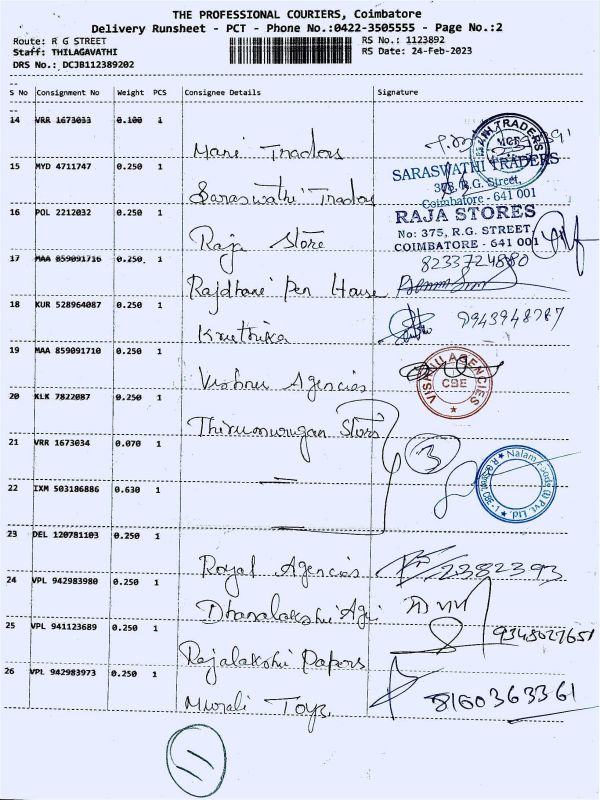 THE PROFESSIONAL COURIERS, Coimbatore
Delivery Runsheet - PCT - Phone No.:0422-3505555 - Page No.:2
Route: R G STREET
Staff: THILAGAVATHI
DRS No.: DCJB112389202
RS No.: 1123892
RS Date: 24-Feb-2023
S No Consignment No Weight PCS Consignee Details Signature
14 VRR 1673033 0.100 1 Mani Traders
MANI TRADERS
15 MYD 4711747 0.250 1 Saraswathi Traders
SARASWATHI TRADERS
378, R.G. Street,
Coimbatore - 641 001
16 POL 2212032 0.250 1 Raja Store
RAJA STORES
No: 375, R.G. STREET,
COIMBATORE - 641 001
17 MAA 859091716 0.250 1 Rajdhani Pen House
8233724880
18 KUR 528964087 0.250 1 Kruthika
19 MAA 859091710 0.250 1 Vishnu Agencies
VISHNU AGENCIES
CBE
20 KLK 7822087 0.250 1 Thirumurugan Stores
21 VRR 1673034 0.070 1
3
22 IXM 503186886 0.630 1
23 DEL 120781103 0.250 1 Royal Agencies
24 VPL 942983980 0.250 1 Dhanalakshi Agi
25 VPL 941123689 0.250 1 Rajalakshi Papers
9348027651
26 VPL 942983973 0.250 1 Murali Toys
8160363361